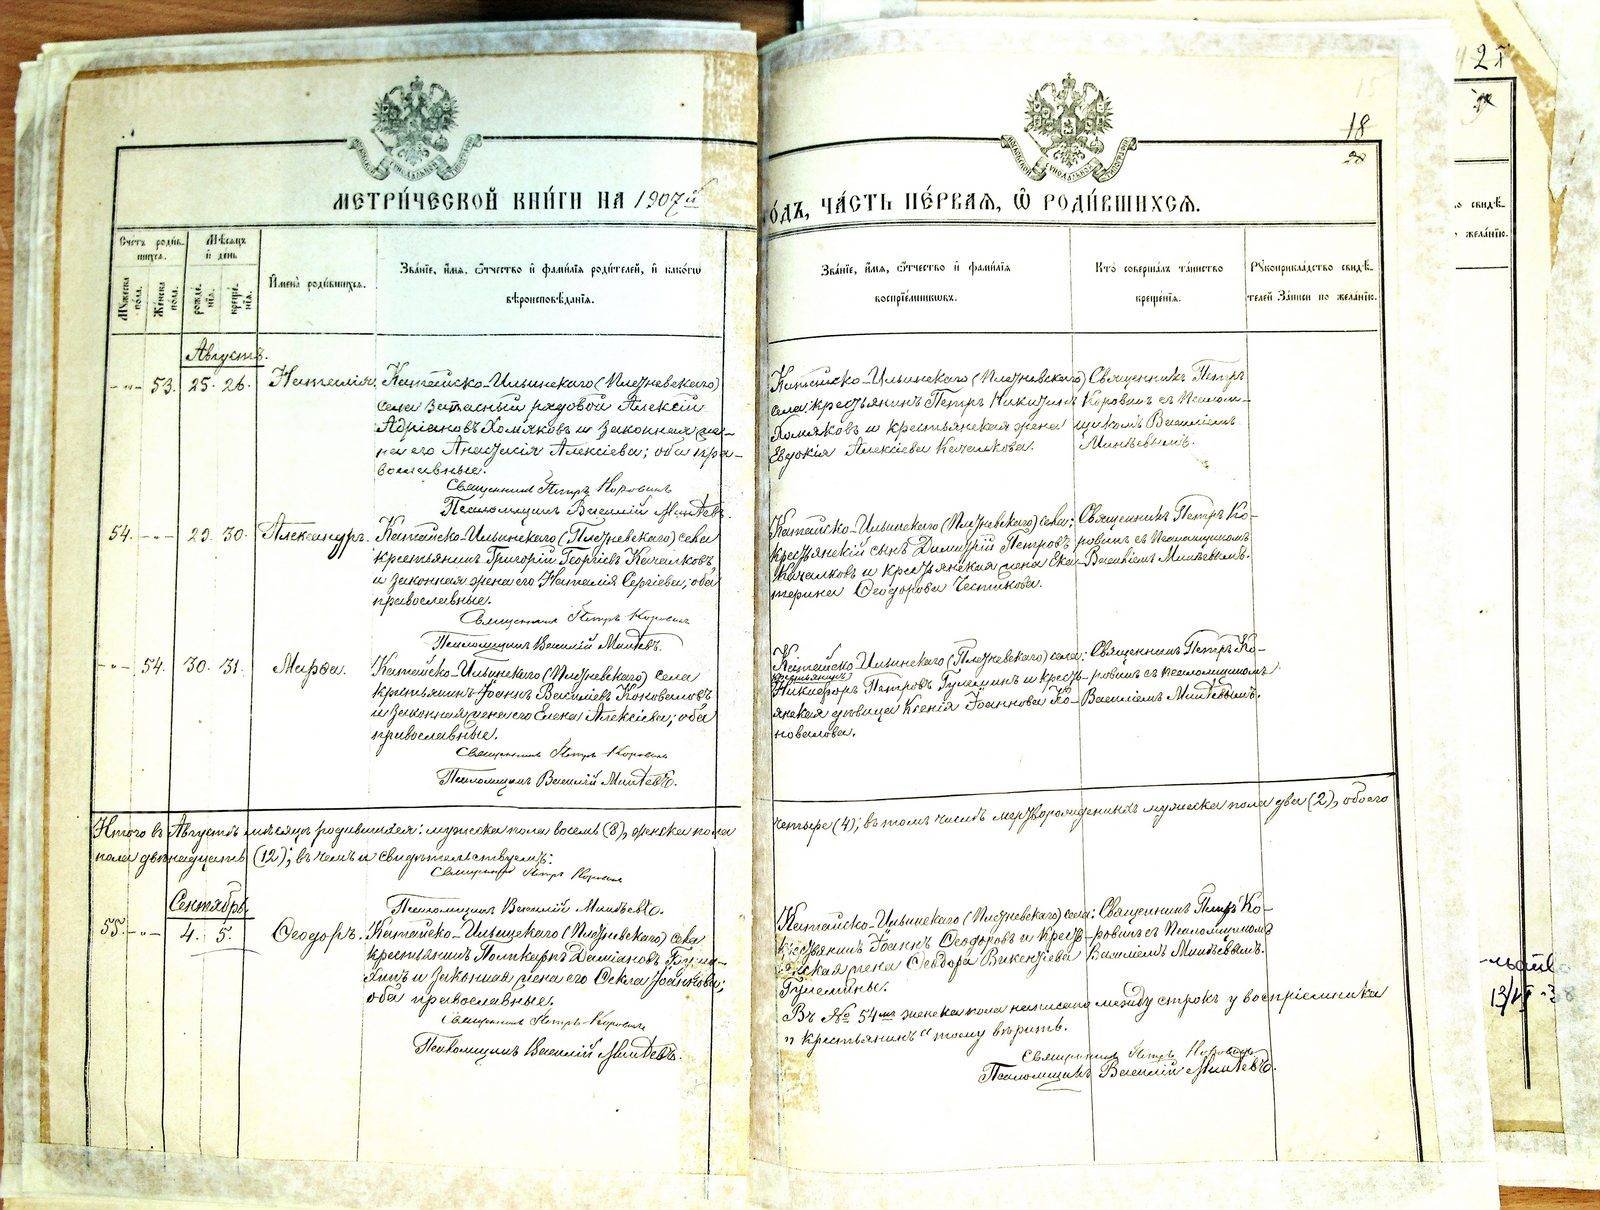 МЕТРИ́ЧЕСКОЙ КНИ́ГИ НА 1907й
О́ДЪ, ЧА́СТЬ ПЕ́РВАЯ, Ѡ РОДИ́ВШИХСЯ.
18
Счетъ роди́в-
шихся.
Мѣсяцъ
и день
Мꙋжеска пола.
Же́нска пола.
рожде-
нія.
креще-
нія.
И҆мена̀ роди́вшихся.
Зва́ніе, и҆́мя, ѻ҆́тчество и҆ фами́лія роди́телей, и҆ како́гѡ
вѣроисповѣ́данія.
Зва́ніе, и҆́мя, ѻ҆́тчество и҆ фами́лія
воспріе́мникѡвъ.
Кто̀ соверша́лъ та́инство
креще́нія.
Рꙋкоприкла́дство свидѣ́-
телей за́писи по жела́нію.
Августъ.
-"- 53. 25. 26. Наталія.
Катайско-Ильинскаго (Плотневскаго)
села запасный рядовой Алексій
Адріановъ Хомяковъ и законная же-
на его Анастасія Алексіева; оба пра-
вославные.
Священникъ Петръ Коровинъ
Псаломщикъ Василій Минѣевъ.
Катайско-Ильинскаго (Плотневскаго)
села крестьянинъ Петръ Никитинъ
Хомяковъ и крестьянская жена
Евдокія Алексіева Качалкова.
Священникъ Петръ
Коровинъ съ псалом-
щикомъ Василіемъ
Минѣевымъ.
54. -"- 29. 30. Александръ.
Катайско-Ильинскаго (Плотневскаго) села
крестьянинъ Григорій Георгіевъ Качалковъ
и законная жена его Наталія Сергіева; оба
православные.
Священникъ Петръ Коровинъ
Псаломщикъ Василій Минѣевъ.
Катайско-Ильинскаго (Плотневскаго) села:
крестьянскій сынъ Димитрій Петровъ
Качалковъ и крестьянская жена Ека-
терина Ѳеодорова Чистикова.
Священникъ Петръ Ко-
ровинъ съ псаломщикомъ
Василіемъ Минѣевымъ.
-"- 54. 30. 31. Марѳа.
Катайско-Ильинскаго (Плотневскаго) села
крестьянинъ Іоаннъ Василіевъ Коноваловъ
и законная жена его Елена Алексіева; оба
православные.
Священникъ Петръ Коровинъ
Псаломщикъ Василій Минѣевъ.
Катайско-Ильинскаго (Плотневскаго) села:
крестьянинъ
Никифоръ Петровъ Гулеминъ и кресть-
янская дѣвица Ксенія Іоаннова Ко-
новалова.
Священникъ Петръ Ко-
ровинъ съ псаломщикомъ
Василіемъ Минѣевымъ.
Итого въ Августѣ мѣсяцѣ родившихся: мужска пола восемь (8), женска пола
четыре (4); въ томъ числѣ мертворожденныхъ мужеска пола два (2), обоего
пола двѣнадцать (12); въ чемъ и свидѣтельствуемъ:
Священникъ Петръ Коровинъ
Псаломщикъ Василій Минѣевъ.
Сентябрь.
55. -"- 4. 5. Ѳеодоръ.
Катайско-Ильинскаго (Плотневскаго) села
крестьянинъ Поликарпъ Даміановъ
и законная жена его Ѳекла Іоаннова;
оба православные.
Священникъ Петръ Коровинъ
Псаломщикъ Василій Минѣевъ.
Катайско-Ильинскаго (Плотневскаго) села:
крестьянинъ Іоаннъ Ѳеодоровъ и кресть-
янская жена Ѳеодора Викентіева
Гулемины.
Священникъ Петръ Ко-
ровинъ съ псаломщикомъ
Василіемъ Минѣевымъ.
Въ № 54мъ женска пола написано между строкъ у воспріемника
„крестьянинъ“ тому вѣрить.
Священникъ Петръ Коровинъ
Псаломщикъ Василій Минѣевъ.